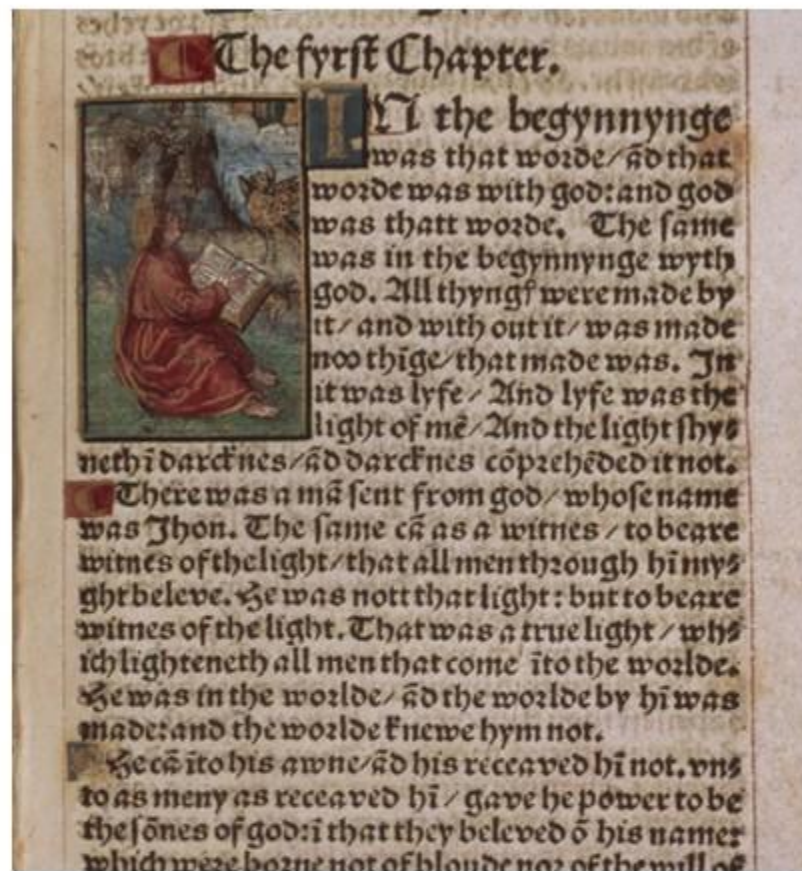 The fyrst Chapter.
IN the begynnynge
was that worde/ ãd that
worde was with god: and god
was thatt worde. The same
was in the begynnynge wyth
god. All thyngſ were made by
it/ and with out it/ was made
noo thĩge/ that made was. In
it was lyfe/ And lyfe was the
light of mẽ/ And the light ſhy⸗
neth ĩ darcknes/ ãd darcknes cõprehẽded it not.
There was a mã ſent from god/ whoſe name
was Jhon. The ſame cã as a witnes/ to beare
witnes of the light/ that all men through hĩ my⸗
ght beleve. He was nott that light: but to beare
witnes of the light. That was a true light/ wh⸗
ich lighteneth all men that come ĩto the worlde.
He was in the worlde/ ãd the worlde by hĩ was
made: and the worlde knewe hym not.
He cã ĩto his awne/ ãd his receaved hĩ not. vn⸗
to as meny as receaved hĩ/ gave he power to be
the ſõnes of god: ĩ that they beleved õ his name:
which were borne not of bloude nor of the will of